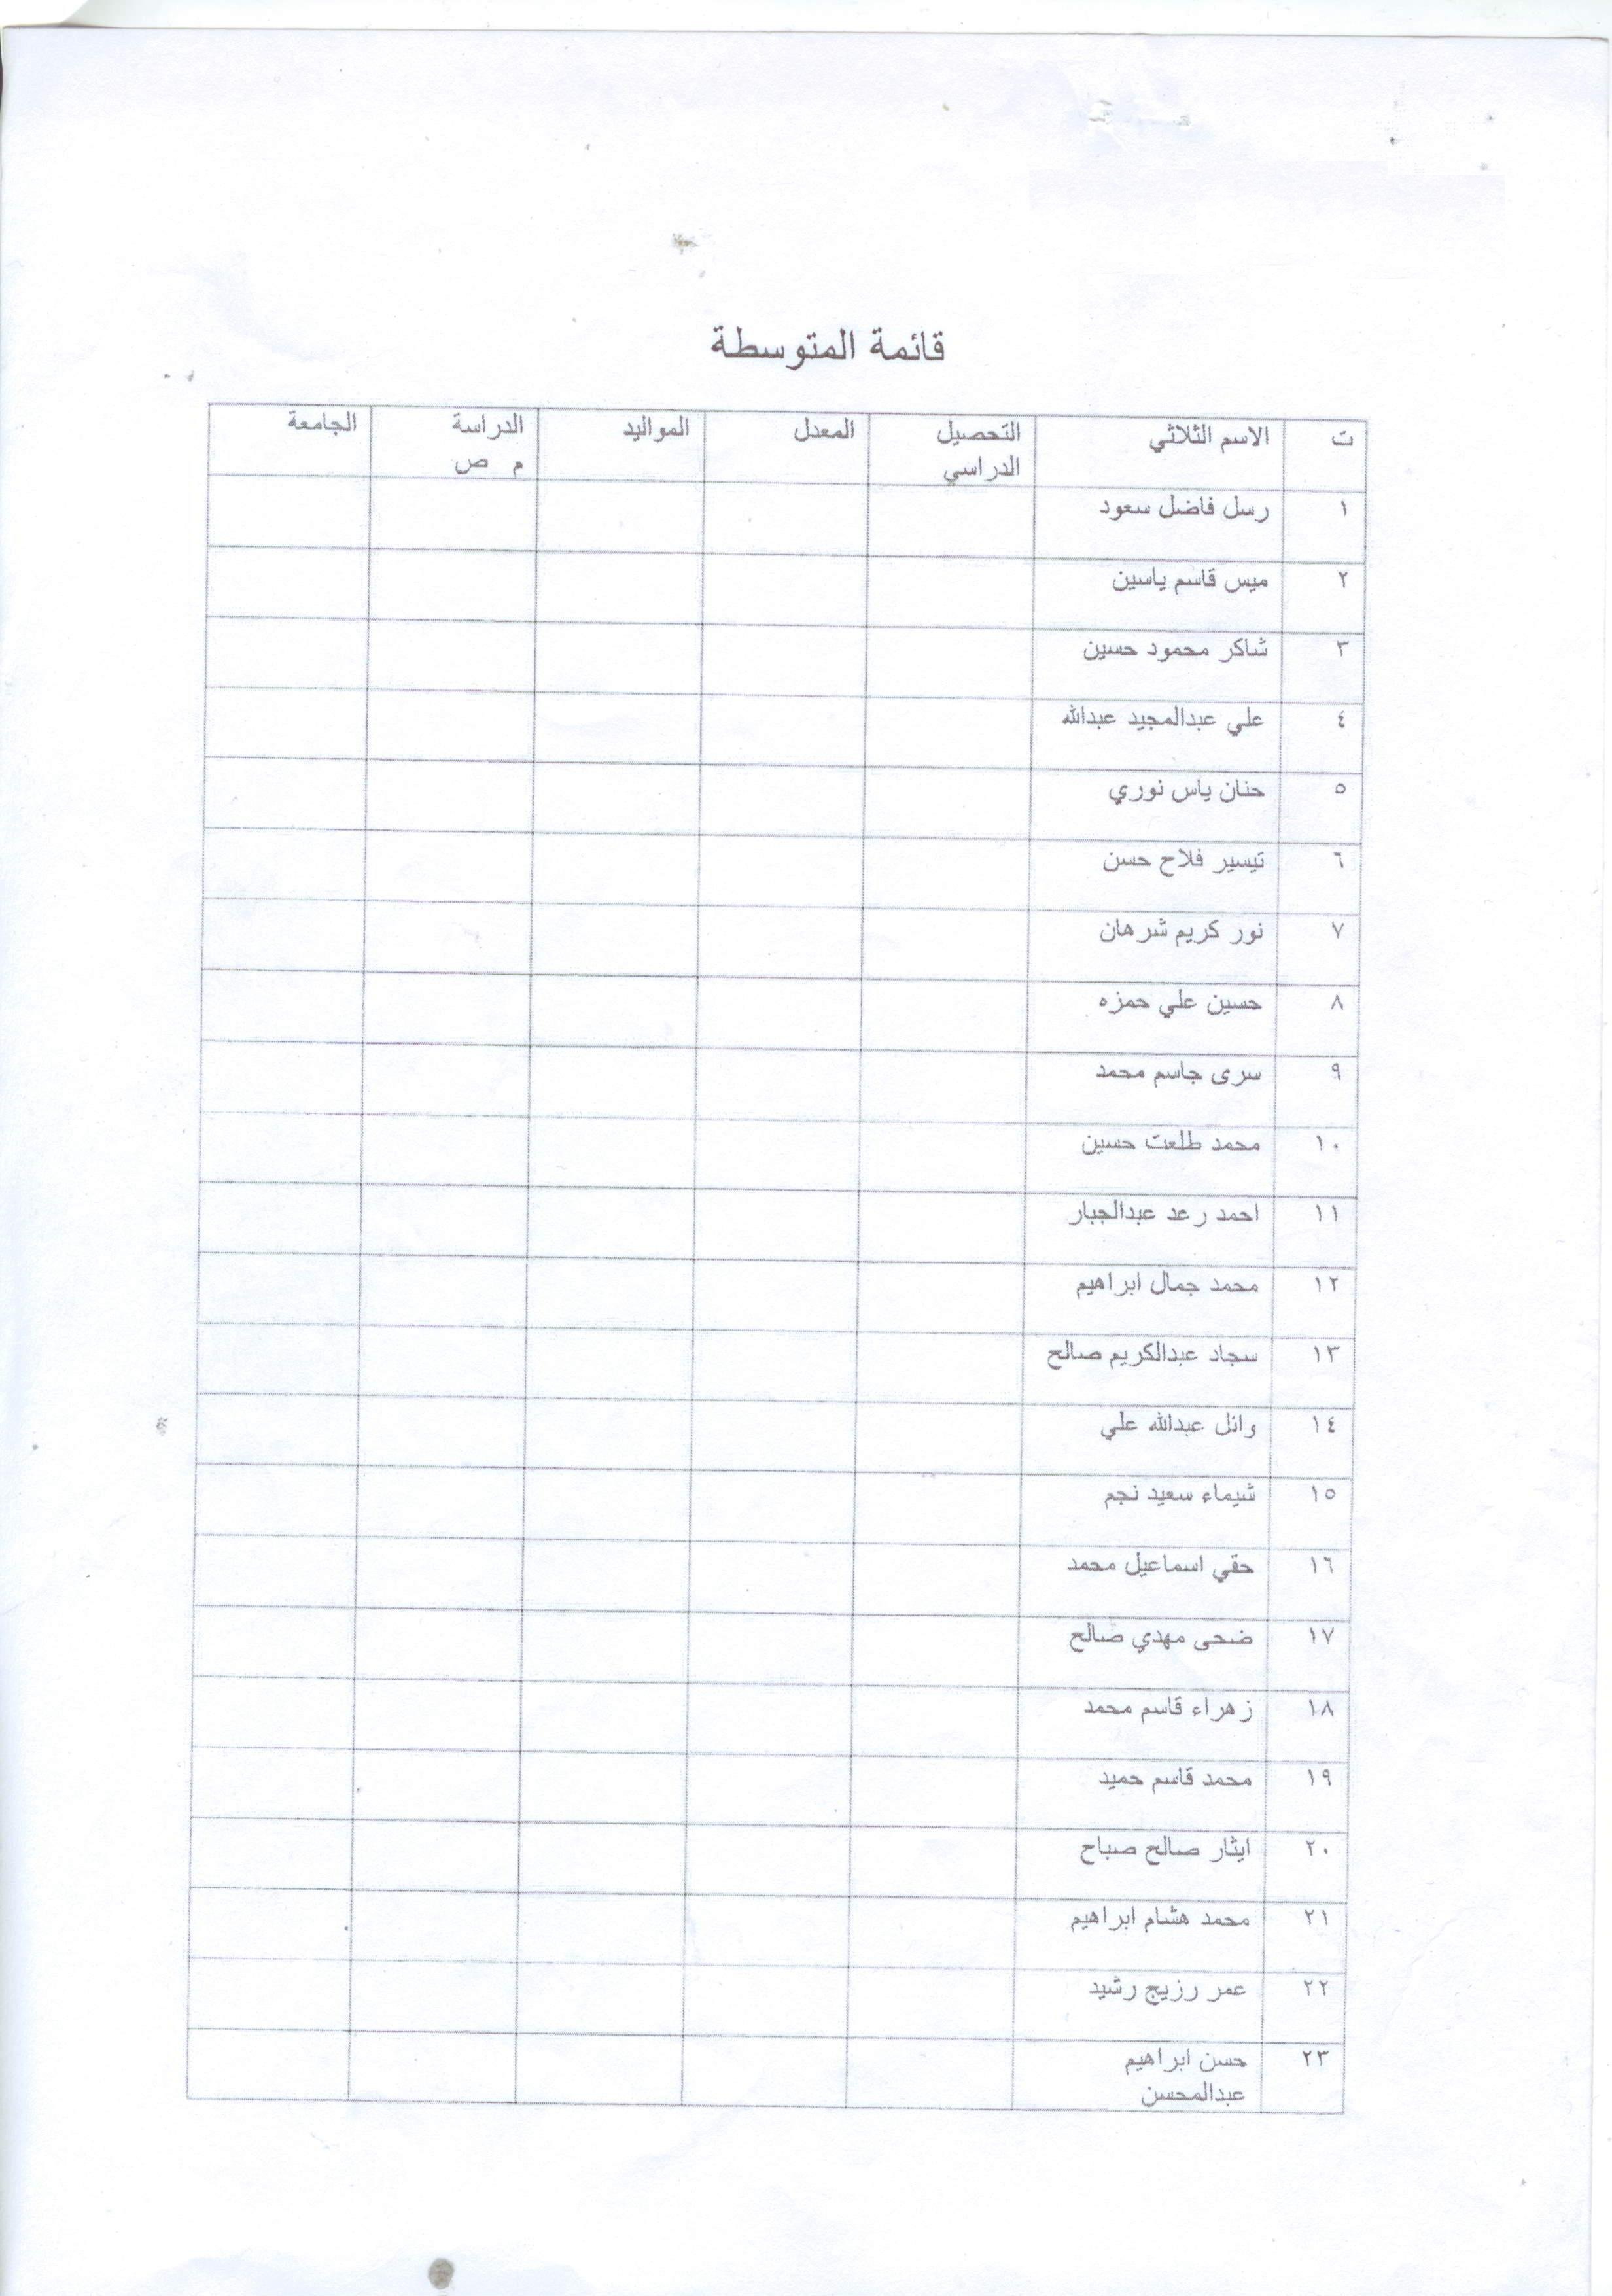 قائمة المتوسطة
ت الاسم الثلاثي التحصيل المعدل المواليد الدراسة الجامعة
الدراسي م ص
١ رسل فاضل سعود
٢ ميس قاسم ياسين
٣ شاكر محمود حسين
٤ علي عبدالمجيد عبدالله
٥ حنان ياس نوري
٦ تيسير فلاح حسن
٧ نور كريم شرهان
٨ حسين علي حمزه
٩ سرى جاسم محمد
١٠ محمد طلعت حسين
١١ احمد رعد عبدالجبار
١٢ محمد جمال ابراهيم
١٣ سجاد عبدالكريم صالح
١٤ وائل عبدالله علي
١٥ شيماء سعيد نجم
١٦ حقي اسماعيل محمد
١٧ ضحى مهدي صالح
١٨ زهراء قاسم محمد
١٩ محمد قاسم حميد
٢٠ ايثار صالح صباح
٢١ محمد هشام ابراهيم
٢٢ عمر رزيج رشيد
٢٣ حسن ابراهيم
عبدالمحسن